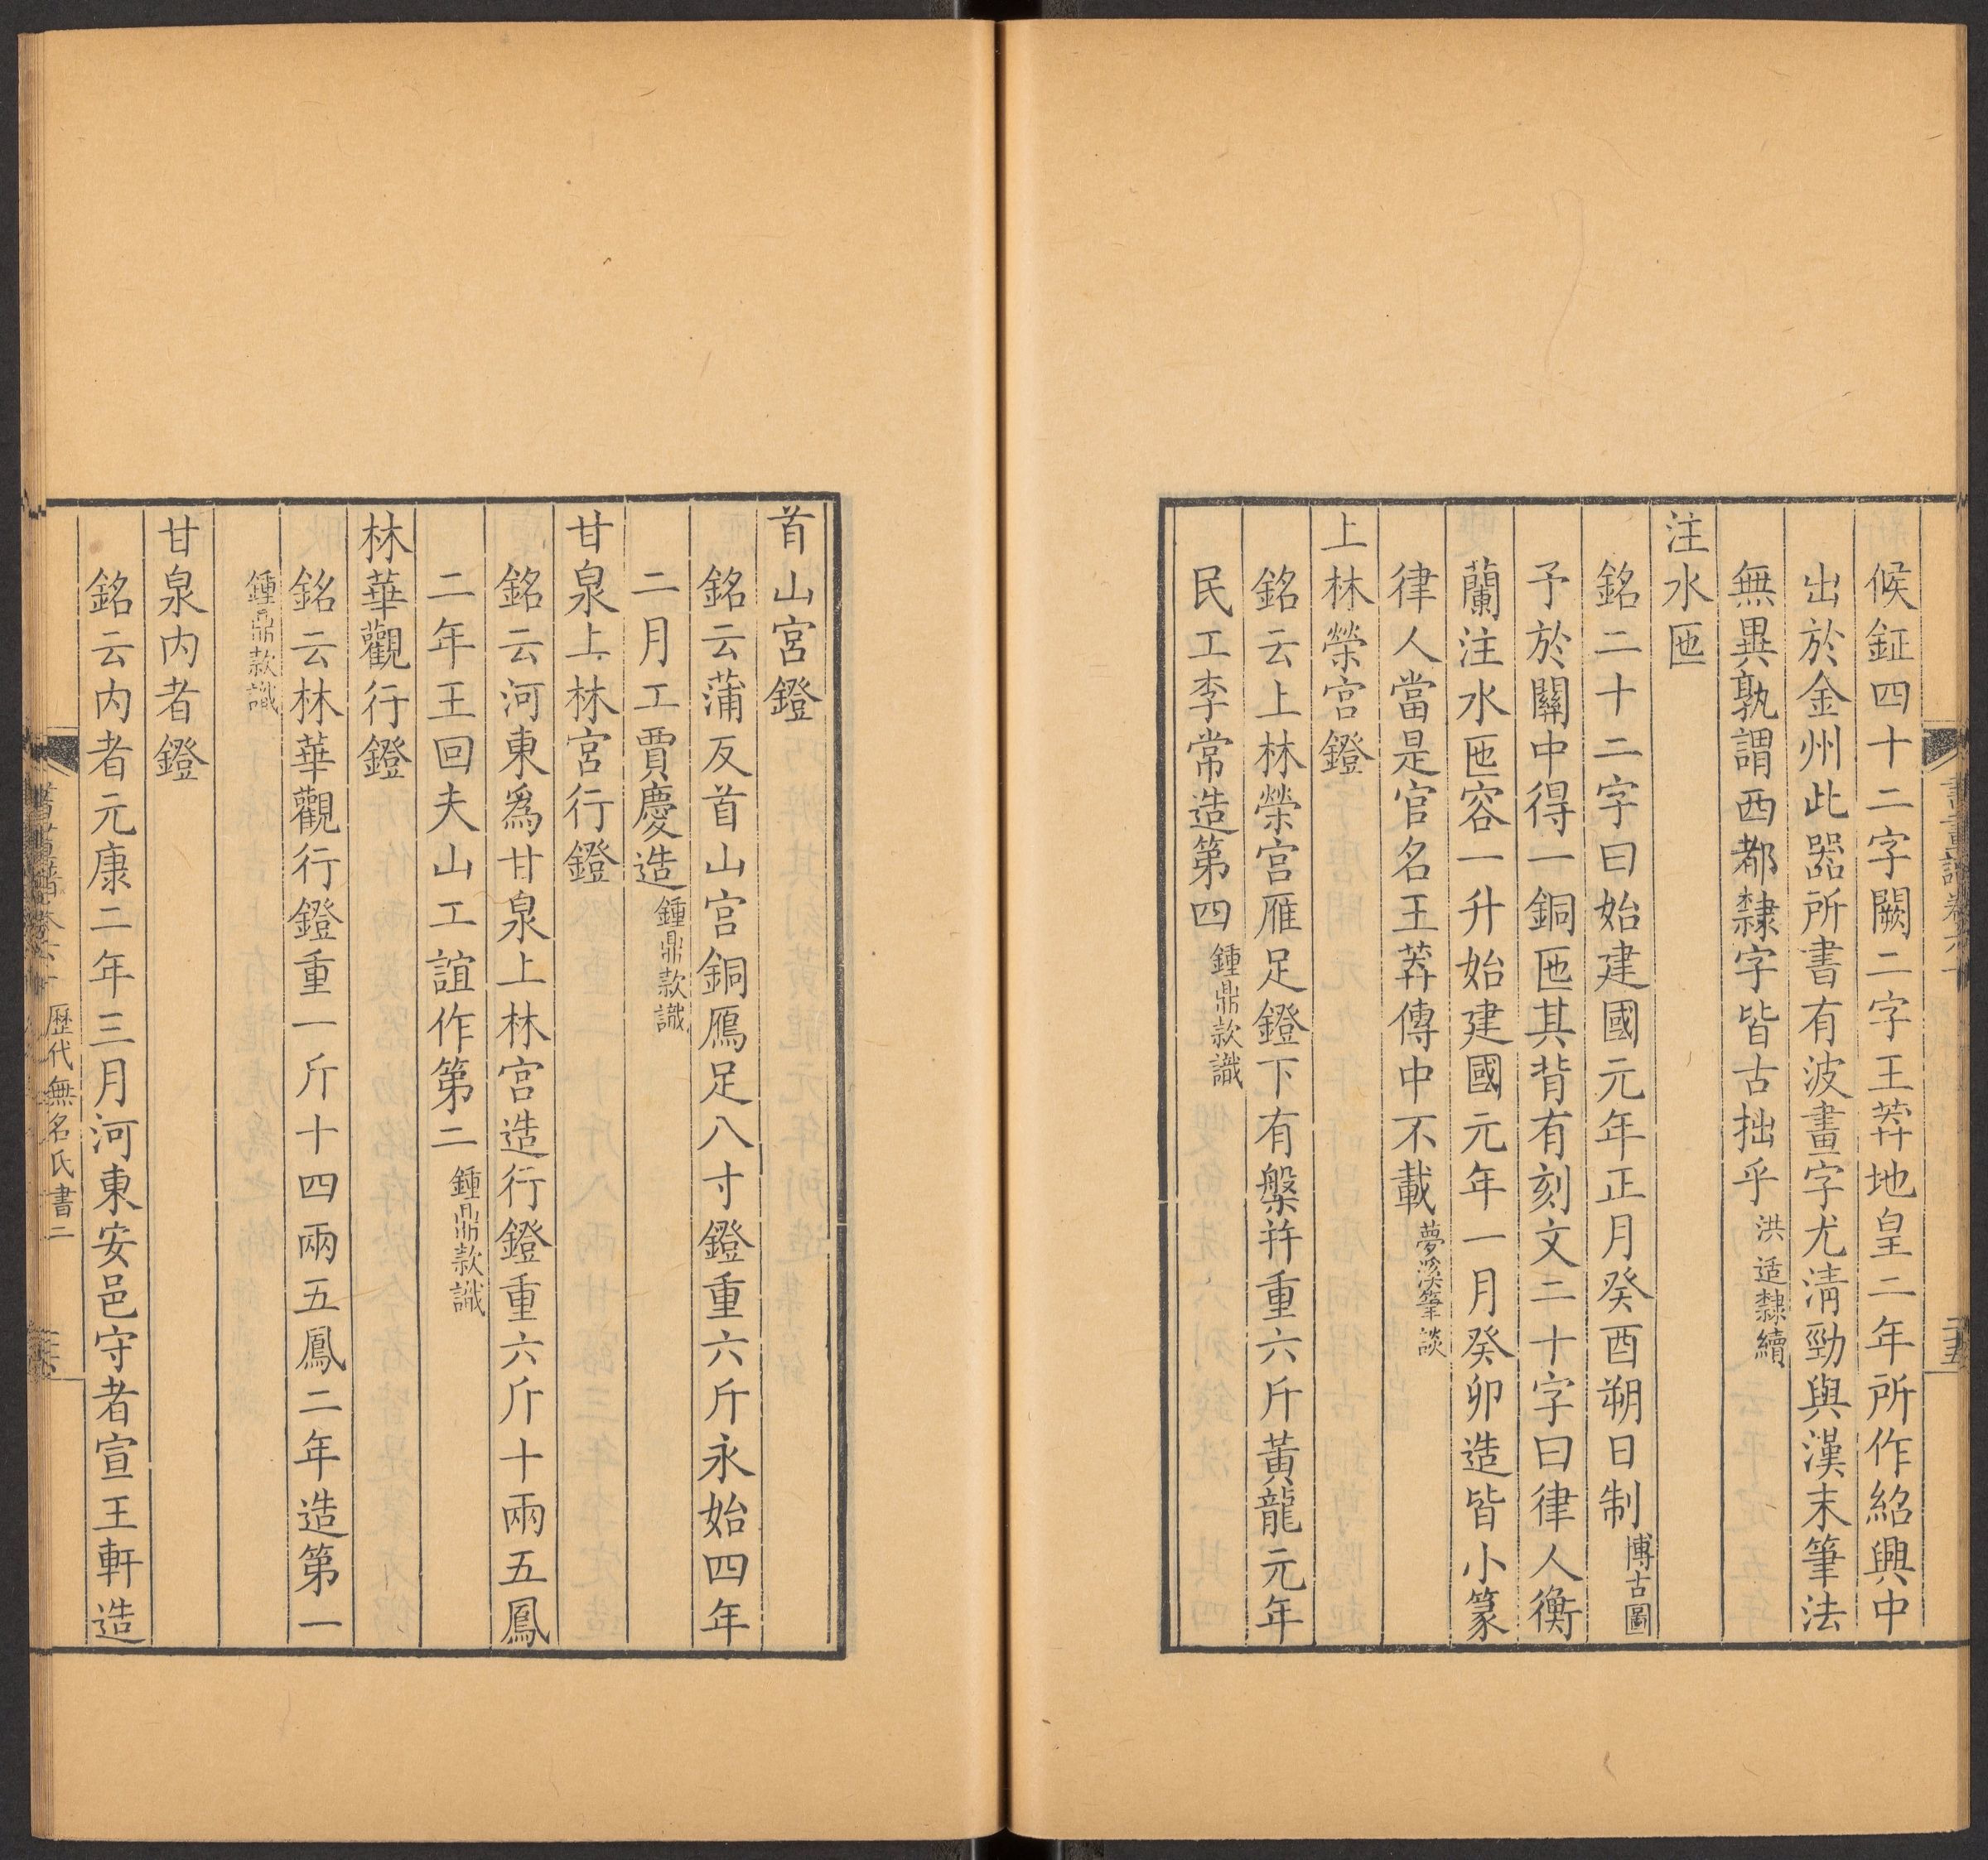 候鉦四十二字闕二字王莽地皇二年所作紹興中
出於金州此器所書有波畫字尤淸勁與漢末筆法
無異孰謂西都隸字皆古拙乎洪适隸續
注水匜
銘二十二字曰始建國元年正月癸酉朔日制博古圖
予於關中得一銅匜其背有刻文二十字曰律人衡
蘭注水匜容一升始建國元年一月癸卯造皆小篆
律人當是官名王莽傳中不載夢溪筆談
上林榮宮鐙
銘云上林榮宮雁足鐙下有槃并重六斤黃龍元年
民工李常造第四鍾鼎款識
首山宮鐙
銘云蒲反首山宮銅鴈足八寸鐙重六斤永始四年
二月工賈慶造鍾鼎款識
甘泉上林宮行鐙
銘云河東爲甘泉上林宮造行鐙重六斤十兩五鳳
二年王回夫山工誼作第二鍾鼎款識
林華觀行鐙
銘云林華觀行鐙重一斤十四兩五鳳二年造第一
鍾鼎款識
甘泉內者鐙
銘云內者元康二年三月河東安邑守者宣王軒造
歷代無名氏書二